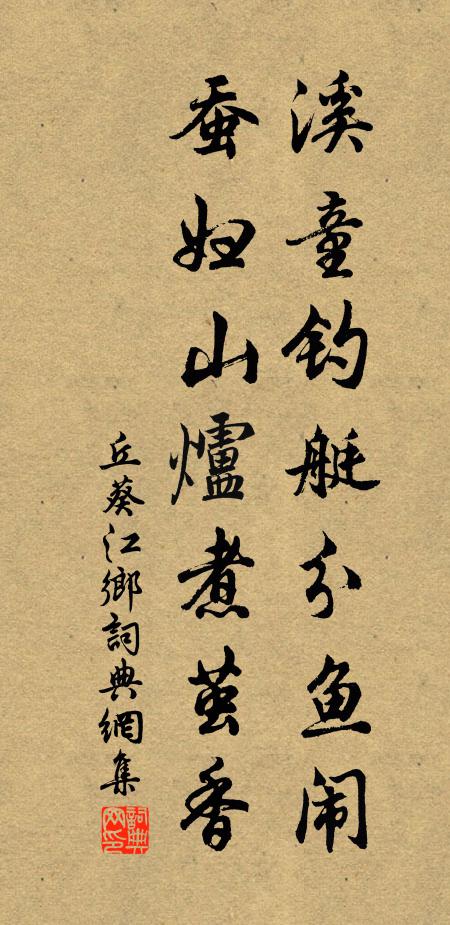 溪童钓艇分鱼闹
蚕妇山爐煮茧香
丘葵江鄉詞典網集
詞典网印